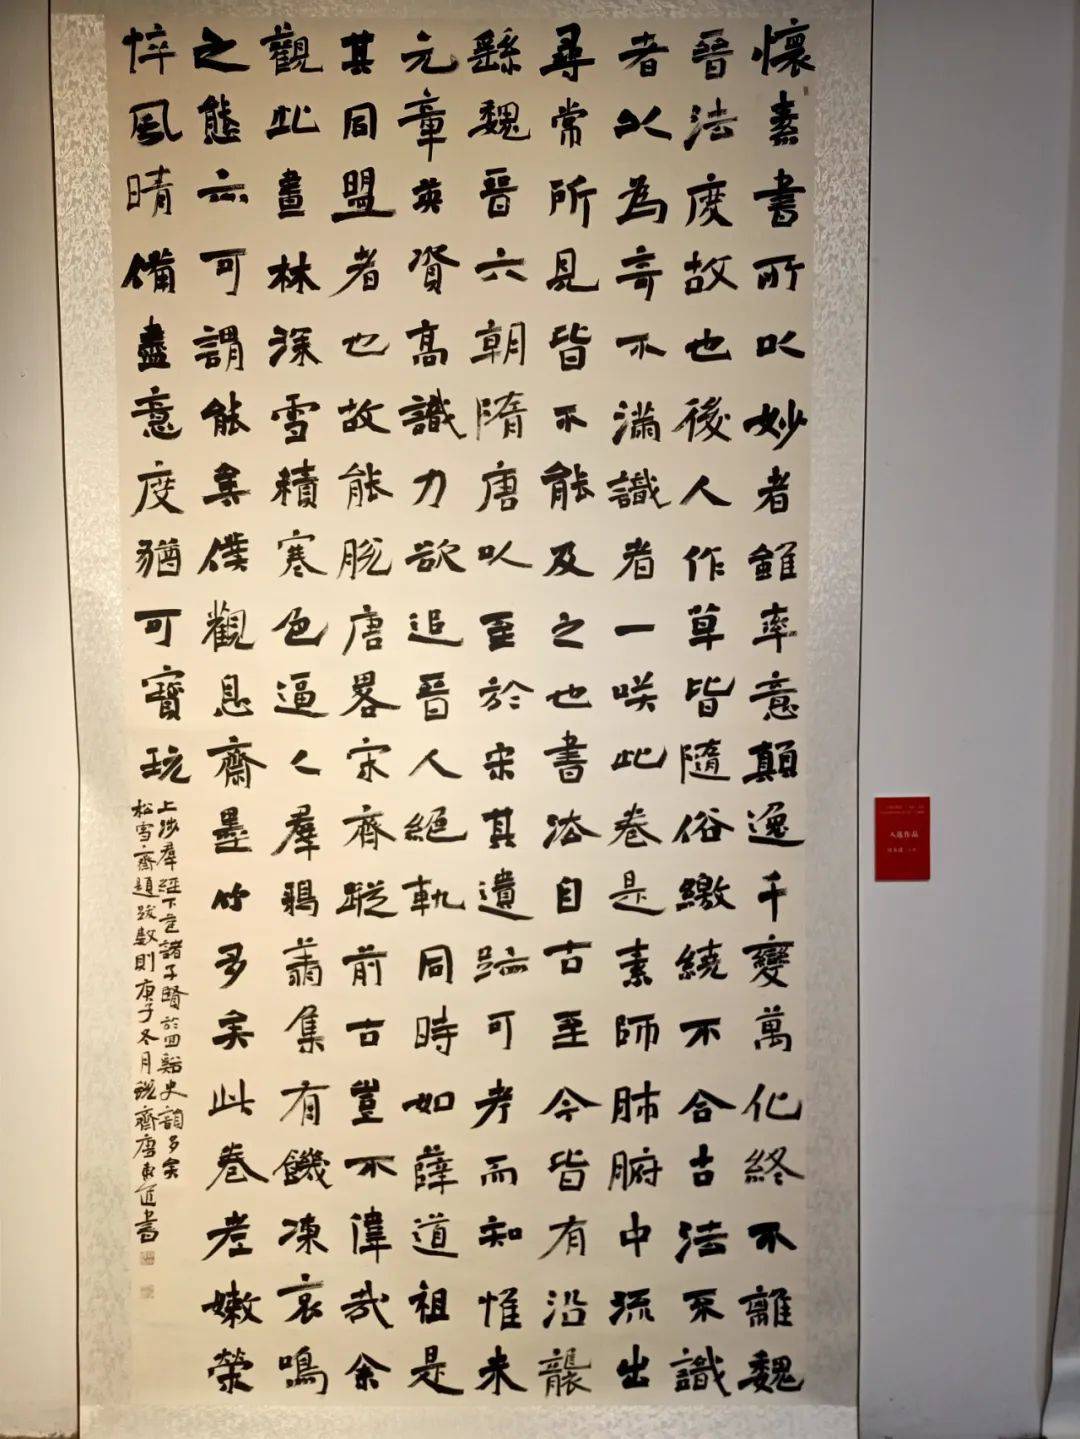 懷素書所以妙者雖率意顛逸千變萬化終不離魏
晉法度故也後人作草皆隨俗繳繞不合古法不識
者以為奇不滿識者一咲此卷是素師肺腑中流出
尋常所見皆不能及之也書法自古至今皆有沿襲
繇魏晉六朝隋唐以至於宋其遺跡可考而知惟米
元章英資高識力欲追晉人絕軌同時如薛道祖是
其同盟者也故能脫唐畧宋齊蹤前古豈不偉哉余
觀此畫林深雪積寒色逼人羣鵶翥集有饑凍哀鳴
之態亦可謂能矣僕觀息齋墨竹多矣此卷老嫩榮
悴風晴備盡意度猶可寶玩
上涉羣經下諸子賢於四谿史韻多矣
松雪齋題跋數則庚子冬月齋唐道書
入选作品